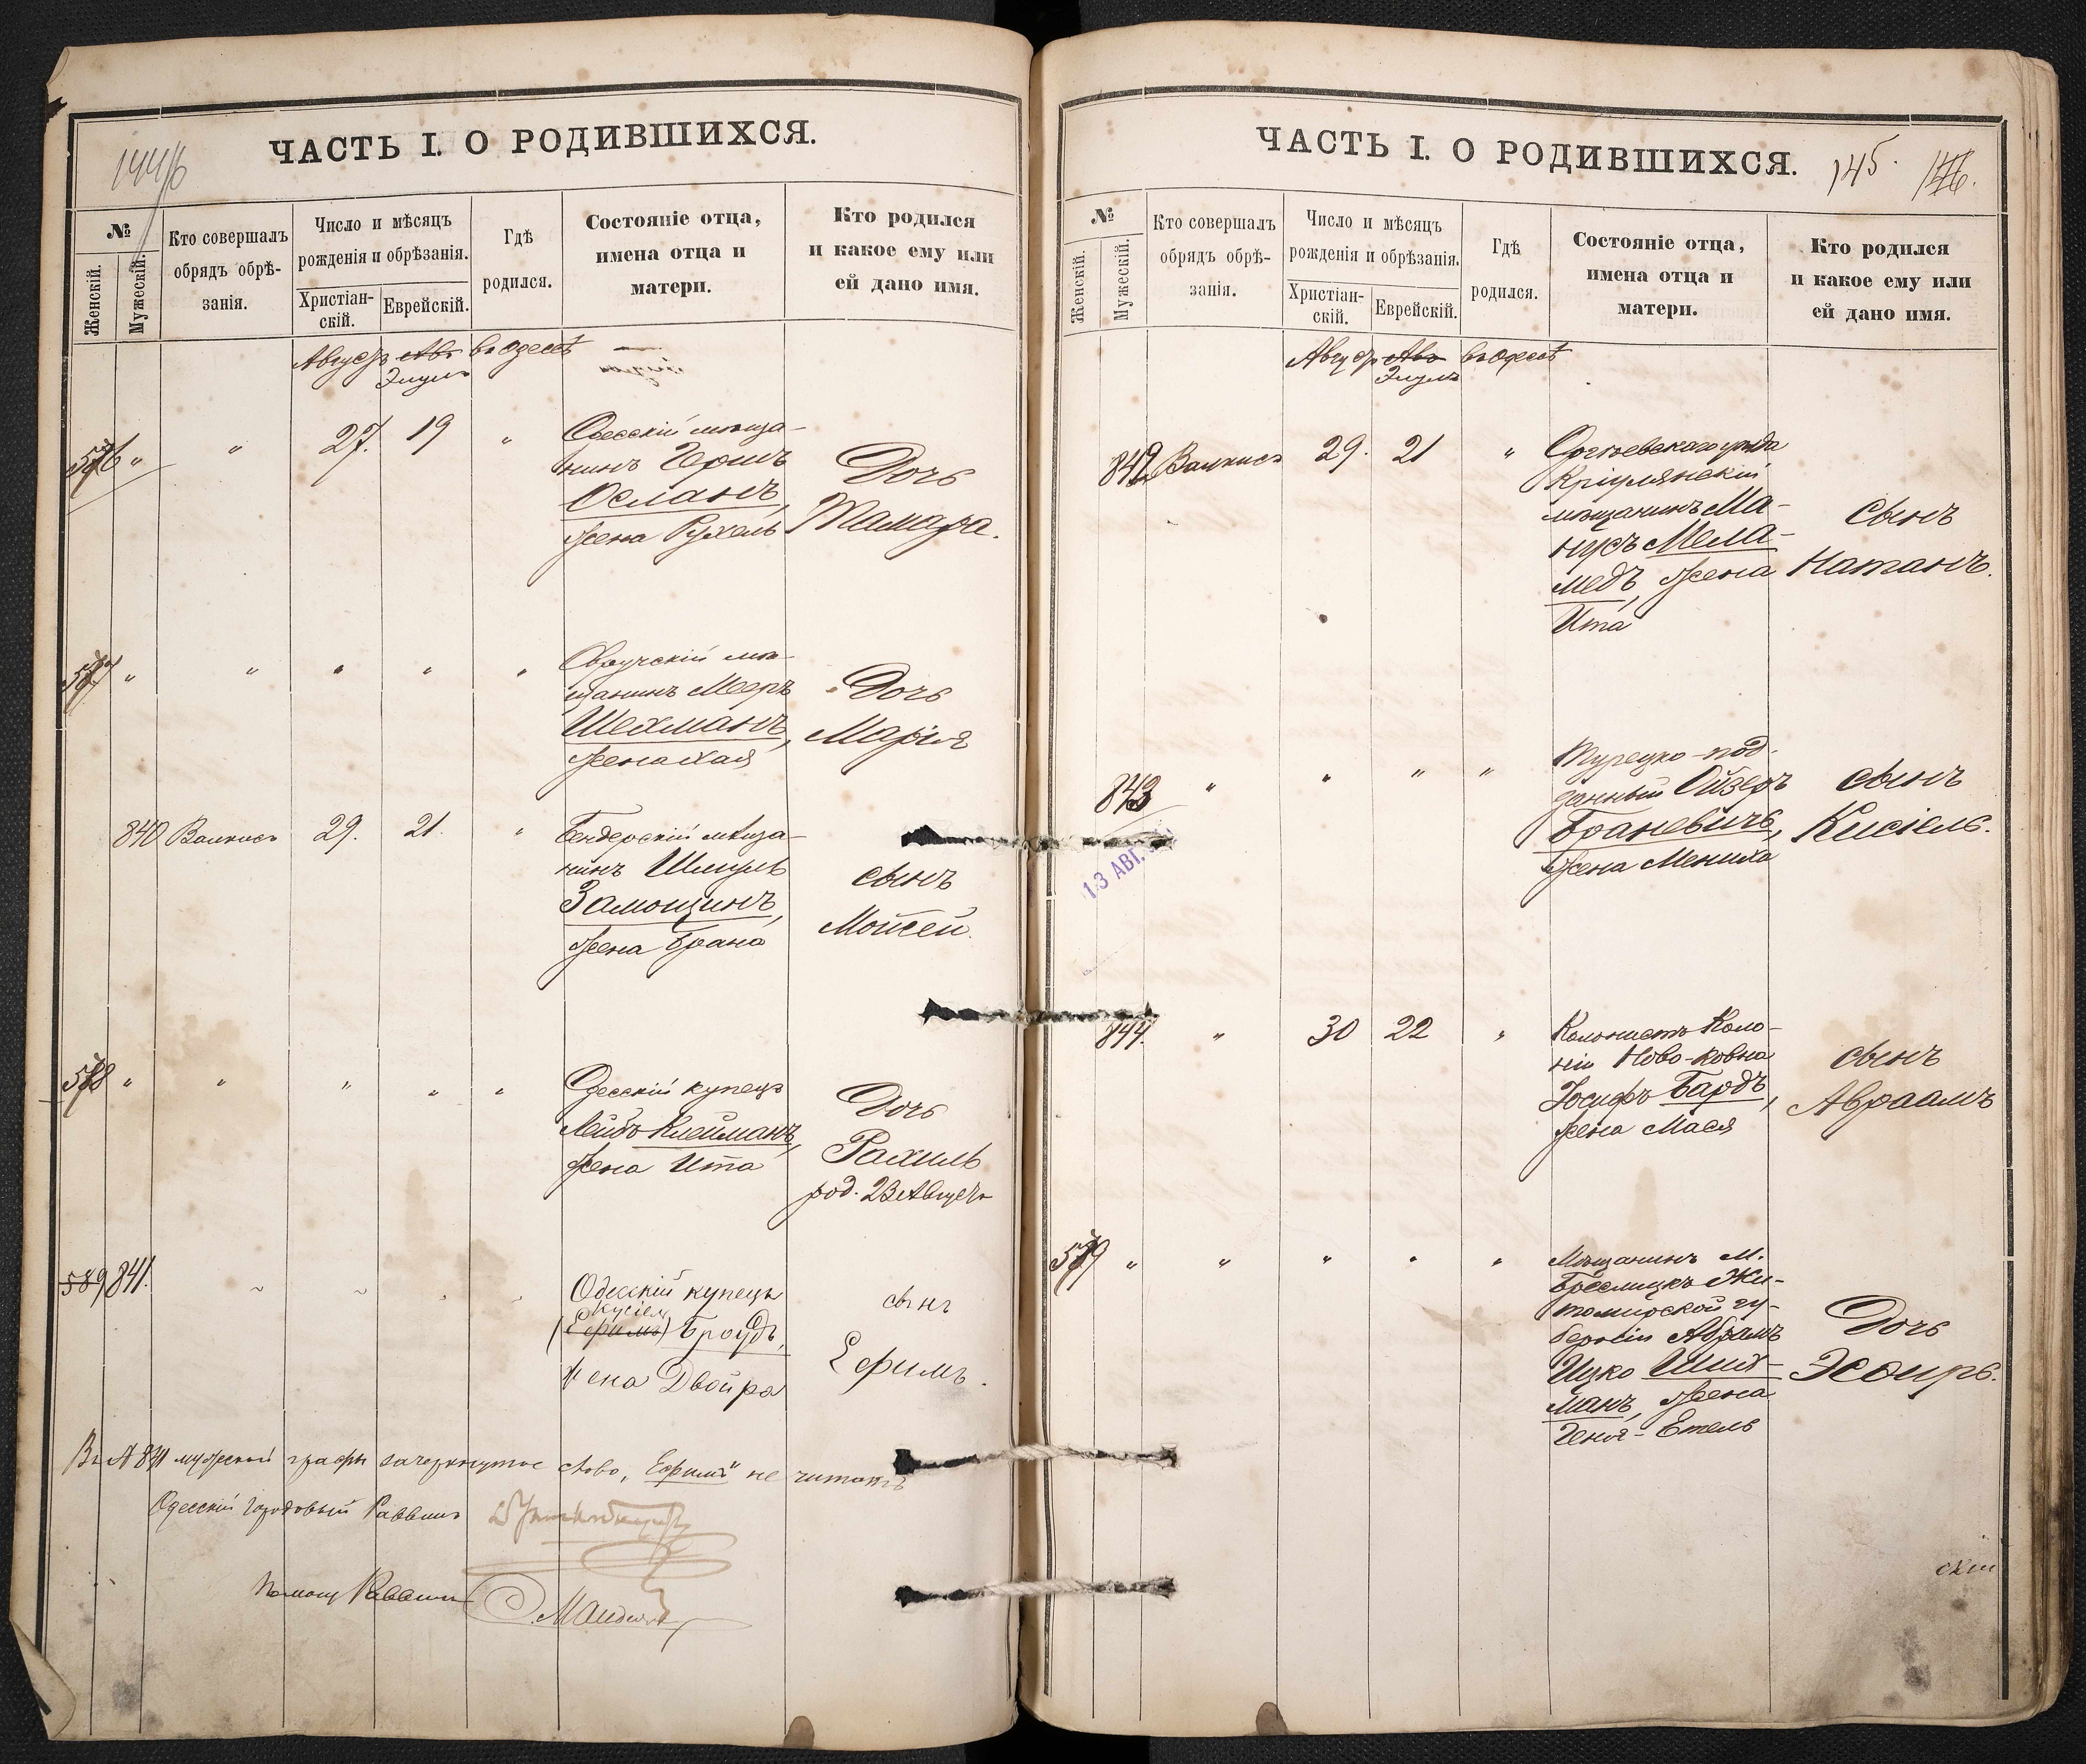 ЧАСТЬ I. О РОДИВШИХСЯ.
№
Женскій.
Мужескій.
Кто совершалъ
обрядъ обрѣ-
занія.
Число и мѣсяцъ
рожденія и обрѣзанія.
Христіан-
скій.
Еврейскій.
Гдѣ
родился.
Состояніе отца,
имена отца и
матери.
Кто родился
и какое ему или
ей дано имя.
Августъ Авъ въ Одессѣ
Элулъ
576 " " 27. 19 "
Одесскій мѣща-
нинъ Гершъ
Осланъ,
жена Рухель
Дочь
Тамара.
577 " " " " "
Овручскій мѣ-
щанинъ Мееръ
Шехманъ,
жена Хая
Дочь
Марія
840 Валкисъ 29. 21. "
Бендерскій мѣща-
нинъ Шмуль
Замощинъ,
жена Брана
сынъ
Мойсей.
578 " " " " "
Одесскій купецъ
Лейбъ Клейманъ,
жена Ита
Дочь
Рахиль
род. 23 Августа
589 841.
Одесскій купецъ
Кусіель
(Ефимъ) Броудъ,
жена Двойра
сынъ
Ефимъ.
Въ № 841 мужеской графы зачеркнутое слово, "Ефимъ" не читать
Одесскій Городовый Раввинъ
Помощ Раввина
ЧАСТЬ I. О РОДИВШИХСЯ.
145. 146.
№
Женскій.
Мужескій.
Кто совершалъ
обрядъ обрѣ-
занія.
Число и мѣсяцъ
рожденія и обрѣзанія.
Христіан-
скій.
Еврейскій.
Гдѣ
родился.
Состояніе отца,
имена отца и
матери.
Кто родился
и какое ему или
ей дано имя.
Августъ Авъ въ Одессѣ
Элулъ
842 Валкисъ 29. 21 "
Оргѣевскаго уѣзда
Кріулянскій
мѣщанинъ Ма-
нусъ Мела-
медъ, жена
Ита
сынъ
Натанъ.
843 " " " "
Турецко-под-
данный Ойзеръ
Браневичъ,
жена Мениха
сынъ
Кисіель.
13 АВГ.
844. " 30 22 "
Колонистъ Коло-
ніи Ново-Ковна
Іосифъ Бардъ,
жена Мася
сынъ
Авраамъ
579 " " " " "
Мѣщанинъ м.
Житомирской гу-
берніи Абрамъ
Ицко Ших-
манъ, жена
Геня-Етель
Дочь
Эсѳирь.